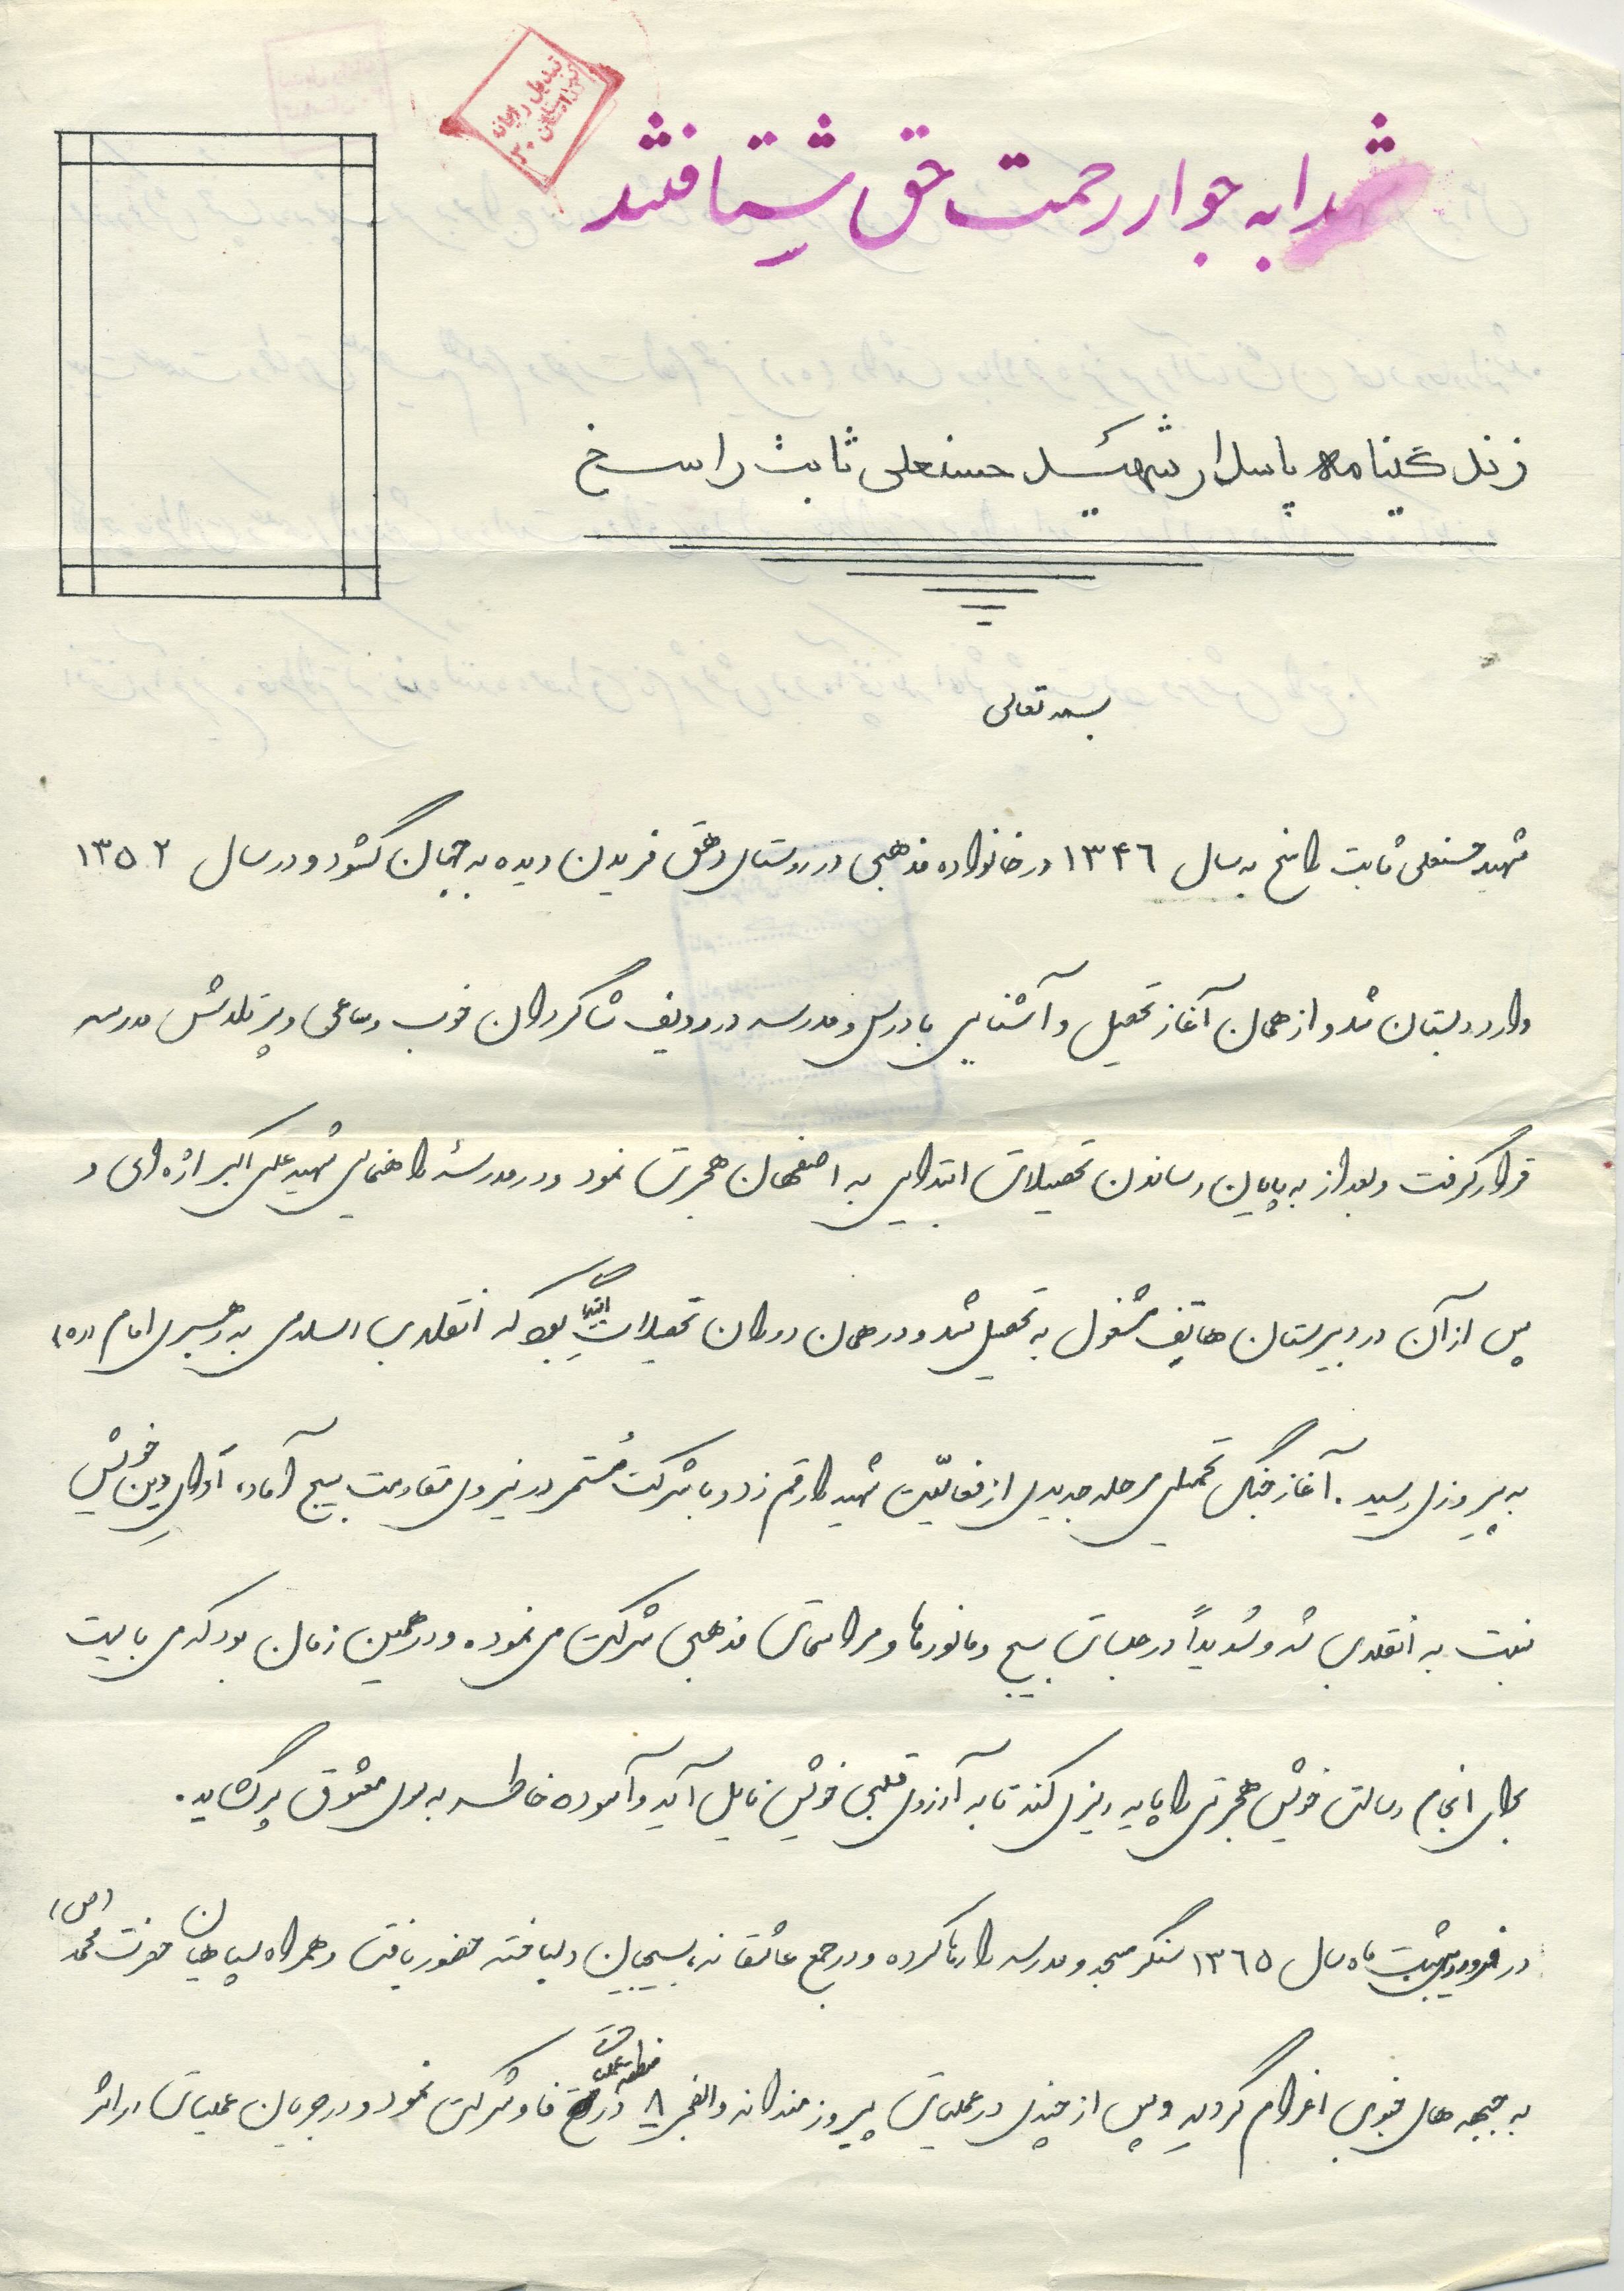 شهدا به جوار رحمت حق شتافتند
زندگینامه پاسدار شهید حسنعلی ثابت راسخ
بسمه تعالی
شهید حسنعلی ثابت راسخ به سال ۱۳۴٦ در خانواده مذهبی در روستای دهق فریدن دیده به جهان گشود و در سال ۱۳۵۲
وارد دبستان شد و از همان آغاز تحصیل و آشنایی با درس و مدرسه در ردیف شاگردان خوب و ساعی و پر تلاش مدرسه
قرار گرفت و بعد از به پایان رساندن تحصیلات ابتدایی به اصفهان هجرت نمود و در مدرسهٔ راهنمایی شهید علی اکبر اژه‌ای و
پس از آن در دبیرستان هاتف مشغول به تحصیل شد و در همان دوران تحصیلات ابتدایی بود که انقلاب اسلامی به رهبری امام (ره)
به پیروزی رسید . آغاز جنگ تحمیلی مرحله جدیدی از فعالیّت شهید را رقم زد و با شرکت مُستمر در نیروی مقاومت بسیج آماده أدای دین خویش
نسبت به انقلاب شد و شدیداً در جلسات بسیج و مانورها و مراسمات مذهبی شرکت می نمود . و در همین زمان بود که می بایست
برای انجام رسالت خویش هجرتی را پایه ریزی کند تا به آرزوی قلبی خویش نایل آید و آسوده خاطر به سوی معشوق پر گشاید .
در ماه سال ۱۳٦۵ سنگر مسجد و مدرسه را رها کرده و در جمع عاشقانه بسیجیان دلباخته حضور یافت و همراه سپاهیان حضرت محمد (ص)
به جبهه های جنوب اعزام گردید و پس از چندی در عملیات پیروزمندانه والفجر ۸ در منطقه عملیاتی فاو شرکت نمود و در جریان عملیات در اثر